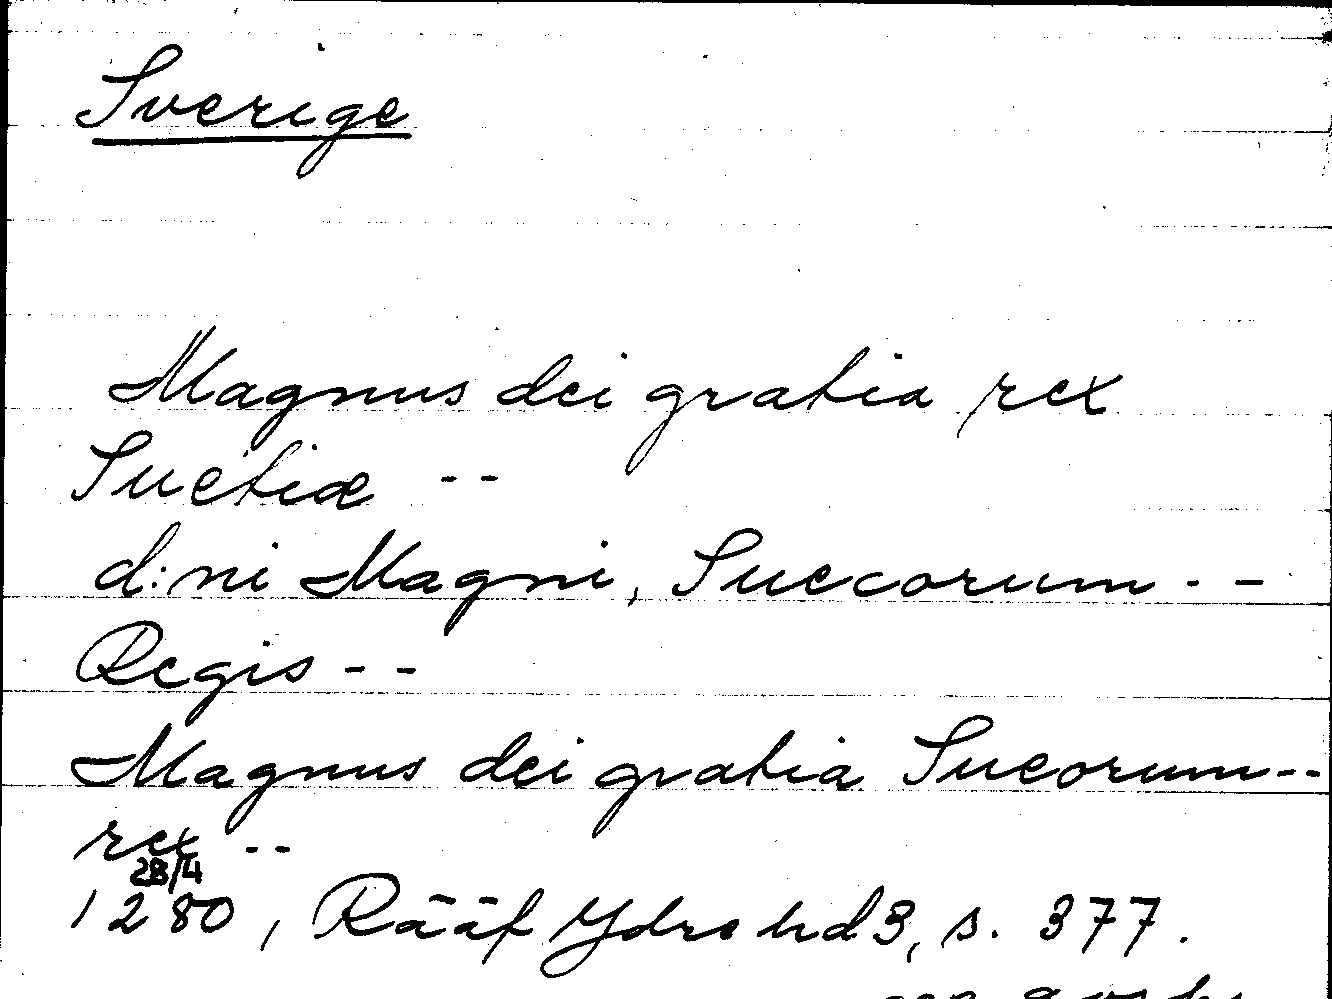 Sverige
Magnus dei gratia rex
Suetiæ --
d:ni Magni, Suecorum --
Regis --
Magnus dei gratia Sueorum --
rex --
28/4
1280, Rääf Ydre hd 3, s. 377.